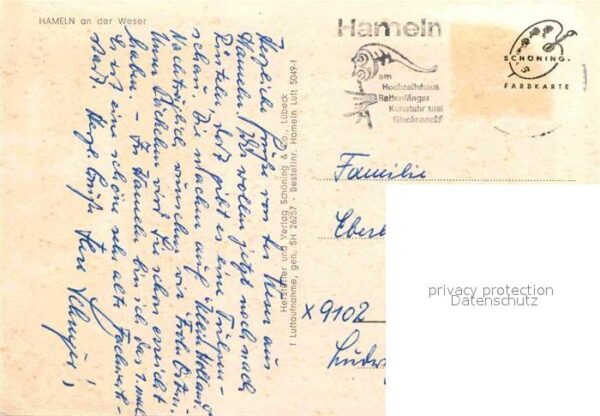 HAMELN an der Weser
Herzliche Grüße von der Reise aus
Hameln. Wir wollen jetzt noch nach
Rinteln, dort gibt es eine
Sie machen auf Holland
Nachträglich wünschen wir Frohe Ostern.
Unser Päckchen wird Sie schon erreicht
haben. – In Hameln bin ich das 1. mal
Es ist eine schöne sehr alte Fachwerk-
stadt. Herzl. Grüße Ihre
Hersteller und Verlag Schöning & Co., Lübeck
f. Luftaufnahme, gen. SH 26257 - Bestellnr. Hameln Luft 5049-f
Hameln
am
Hochzeitshaus
Rattenfänger
Kunstuhr und
Glockenspiel
SCHÖNING
FARBKARTE
Familie
X 9102
privacy protection
Datenschutz